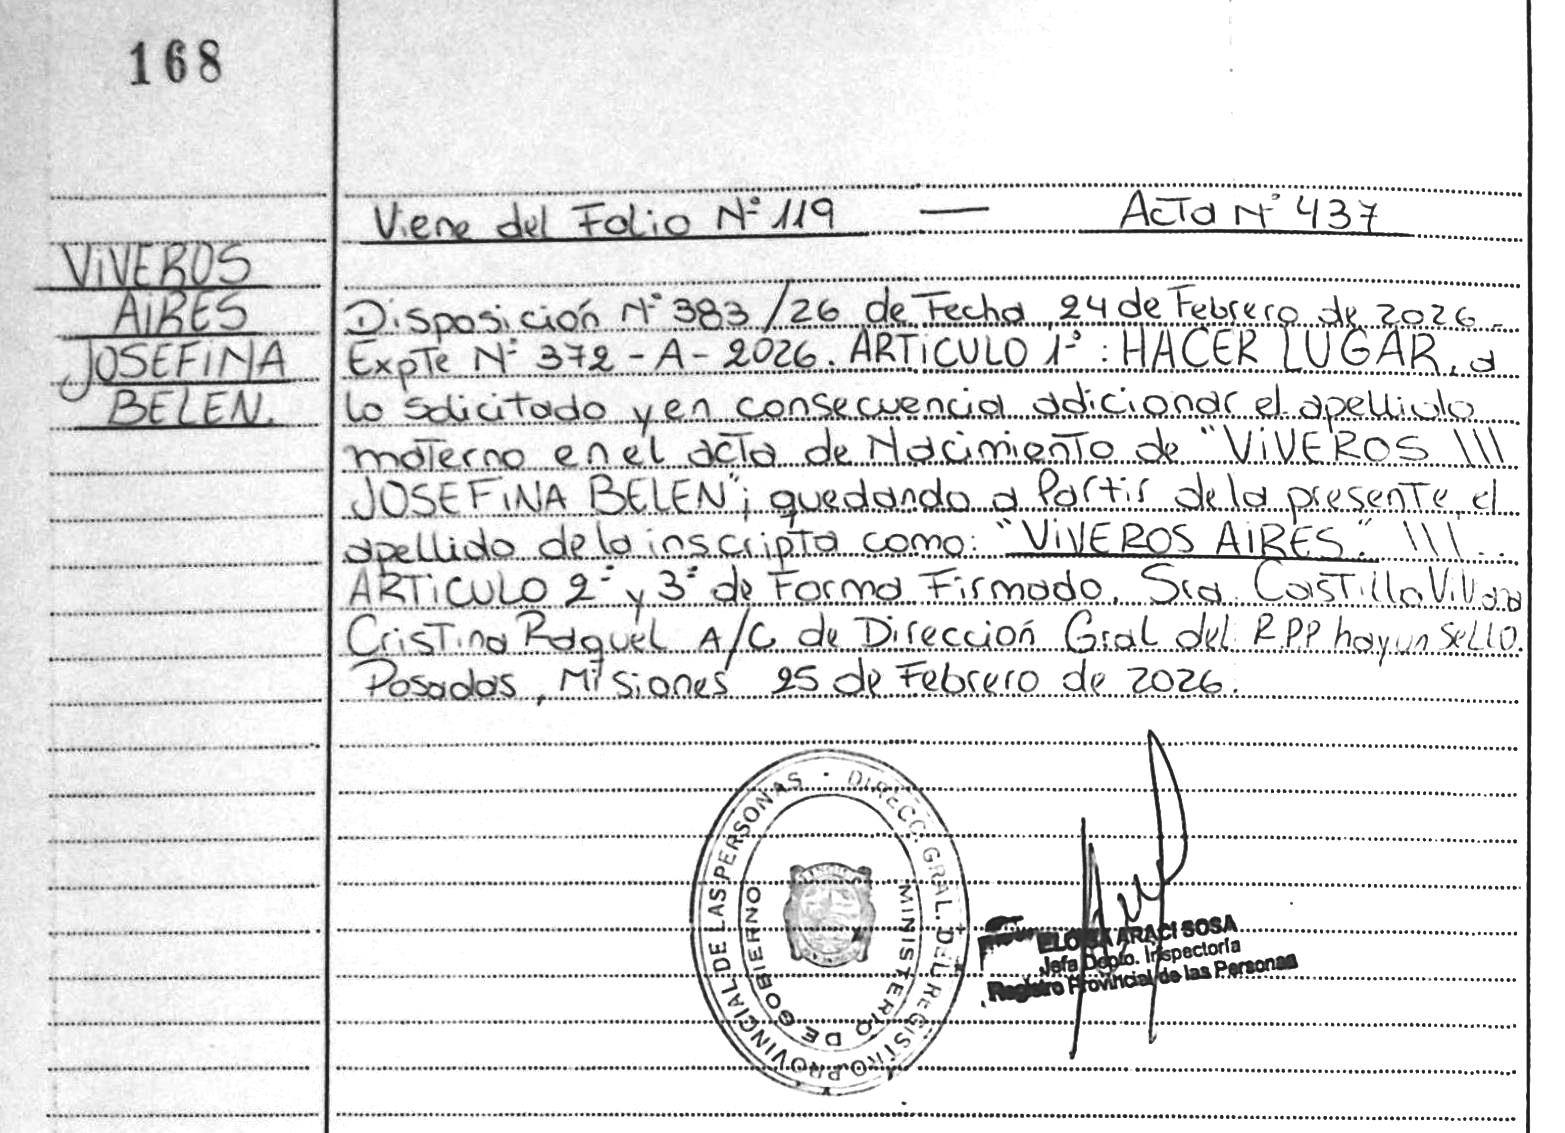 168
Viene del Folio N° 119 — Acta N° 437
VIVEROS
AIRES
JOSEFINA
BELEN.
Disposición N° 383/26 de Fecha 24 de Febrero de 2026.
Expte N° 372-A-2026. ARTICULO 1°: HACER LUGAR, a
lo solicitado y en consecuencia adicionar el apellido
materno en el acta de Nacimiento de "VIVEROS \\\
JOSEFINA BELEN"; quedando a Partir de la presente, el
apellido de la inscripta como: "VIVEROS AIRES." \\\
ARTICULO 2° y 3° de Forma Firmado. Sra. Castilla Viviana
Cristina Raquel A/C de Dirección Gral del R.P.P hay un SELLO.
Posadas, Misiones 25 de Febrero de 2026.
DIRECC. GRAL. DEL REGISTRO PROVINCIAL DE LAS PERSONAS
MINISTERIO DE GOBIERNO
ARACI SOSA
Jefa Depto. Inspectoría
Registro Provincial de las Personas